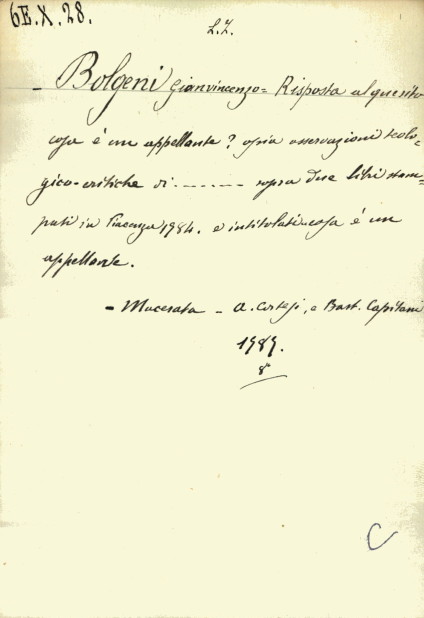 6E.X.28.
L.Z.
- Bolgeni Gianvincenzo = Risposta al quesito
cosa è un appellante? ossia osservazioni teolo-
gico-critiche di ------- sopra due libri stam-
pati in Piacenza 1784. e intitolati-cosa è un
appellante.
- Macerata - A. Cortesi, e Bart. Capitani
1787.
8°
C